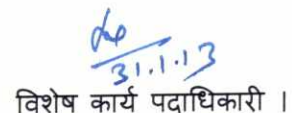 31.1.13
विशेष कार्य पदाधिकारी ।